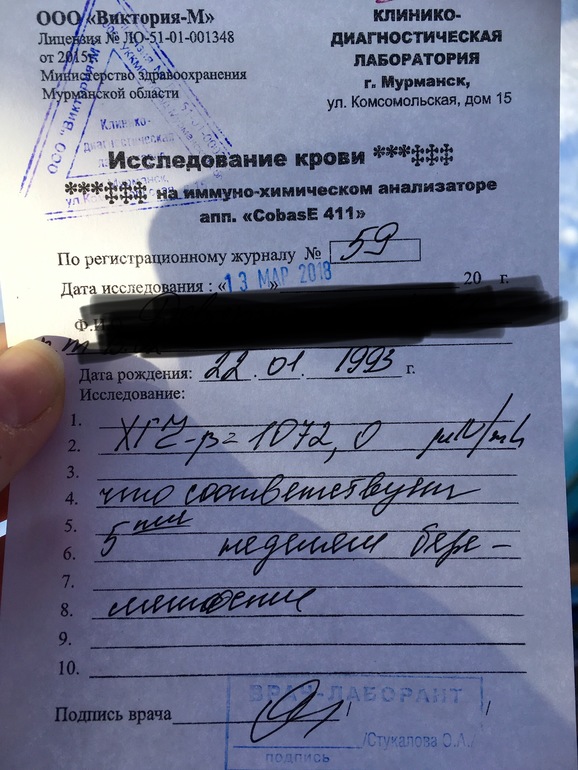 ООО «Виктория-М»
Лицензия № ЛО-51-01-001348
от 2015г.
Министерство здравоохранения
Мурманской области
КЛИНИКО-
ДИАГНОСТИЧЕСКАЯ
ЛАБОРАТОРИЯ
г. Мурманск,
ул. Комсомольская, дом 15
ООО "Виктория М"
Клинико-
диагностическая
Исследование крови ***‡‡‡
***‡‡‡ на иммуно-химическом анализаторе
апп. «CobasE 411»
По регистрационному журналу № 59
Дата исследования : «13 МАР 2018» 20 г.
Ф.И.
Дата рождения: 22.01.1993 г.
Исследование:
1.
2. ХГЧ-β=1072,0 mU/ml
3.
4. что соответствует
5.
6. 5ти неделям бере-
7.
8. менности
9.
10.
Подпись врача
ВРАЧ-ЛАБОРАНТ
/Стукалова О.А./
подпись